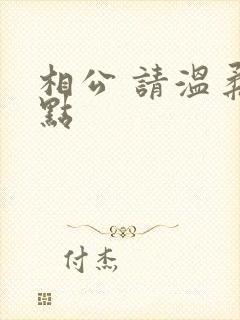 相公 請溫柔
點
付杰